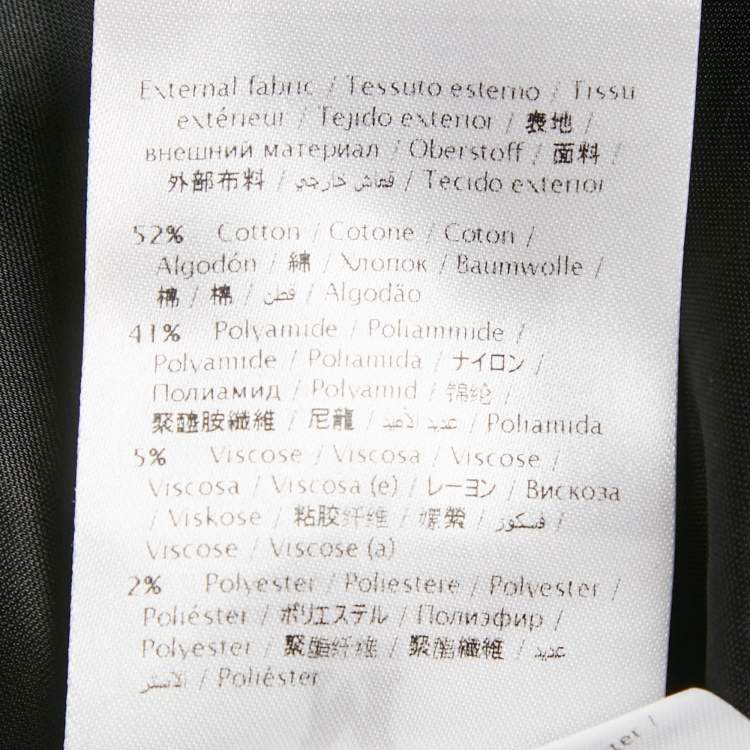 External fabric / Tessuto esterno / Tissu
extérieur / Tejido exterior / 表地 /
внешний материал / Oberstoff / 面料 /
外部布料 / قماش خارجي / Tecido exterior
52% Cotton / Cotone / Coton /
Algodón / 綿 / Хлопок / Baumwolle /
棉 / 棉 / قطن / Algodão
41% Polyamide / Poliammide /
Polyamide / Poliamida / ナイロン /
Полиамид / Polyamid / 锦纶 /
聚醯胺纖維 / 尼龍 / عديد الأميد / Poliamida
5% Viscose / Viscosa / Viscose /
Viscosa / Viscosa (e) / レーヨン / Вискоза
/ Viskose / 粘胶纤维 / 嫘縈 / فسكوز /
Viscose / Viscose (a)
2% Polyester / Poliestere / Polyester /
Poliéster / ポリエステル / Полиэфир /
Polyester / 聚酯纤维 / 聚酯纖維 / عديد
الأستر / Poliéster